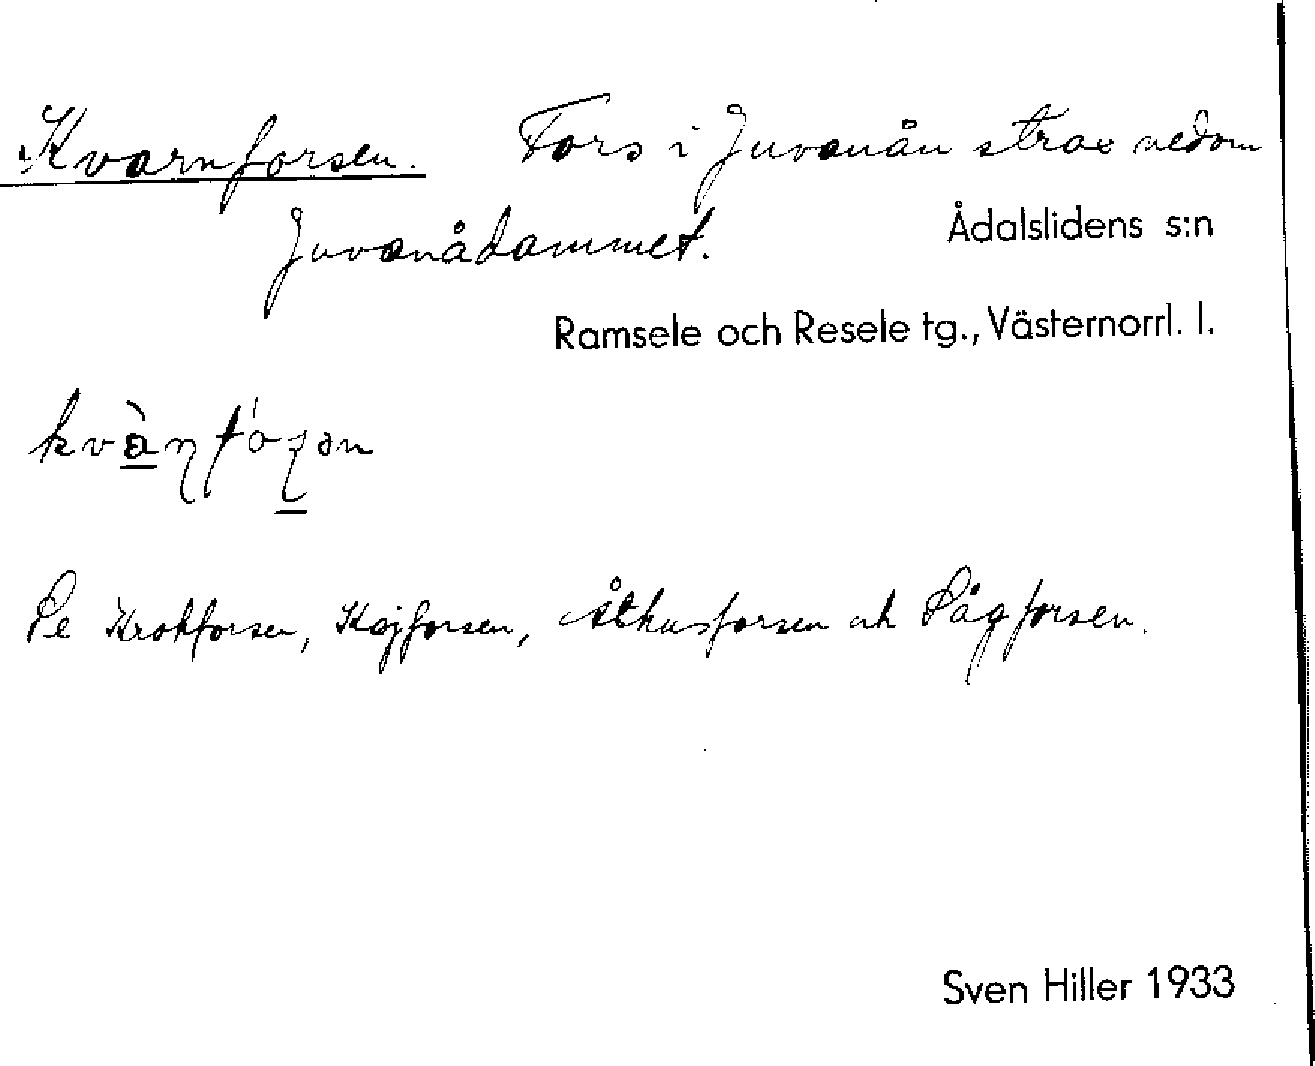 Kvarnforsen. Fors i Juvanån strax nedom
Juvanådammet.
Ådalslidens s:n
Ramsele och Resele tg., Västernorrl. l.
Se Krokforsen, Kojforsen, Åthusforsen och Sågforsen.
Sven Hiller 1933